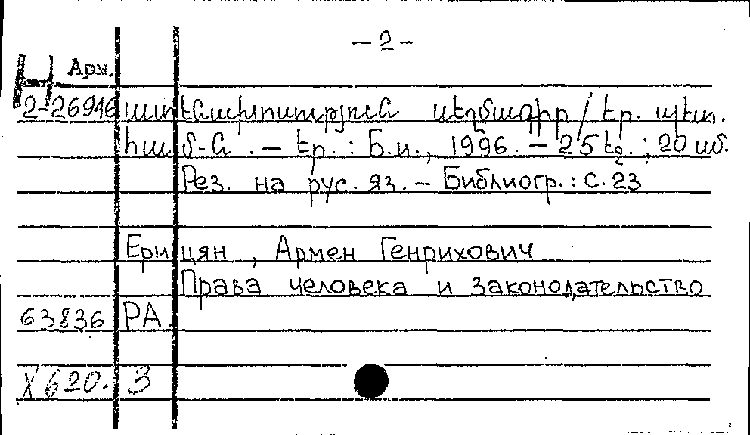 – 2 –
Арм.
2-26946 ատենախոսություն սեղմագիր / Եր. պետ.
համ-ն . – Եր. : Б.и., 1996. – 25 էջ ; 20 սմ.
Рез. на рус. яз. – Библиогр.: с. 23
Ерицян, Армен Генрихович
Права человека и законодательство
63836 РА.
X620.3